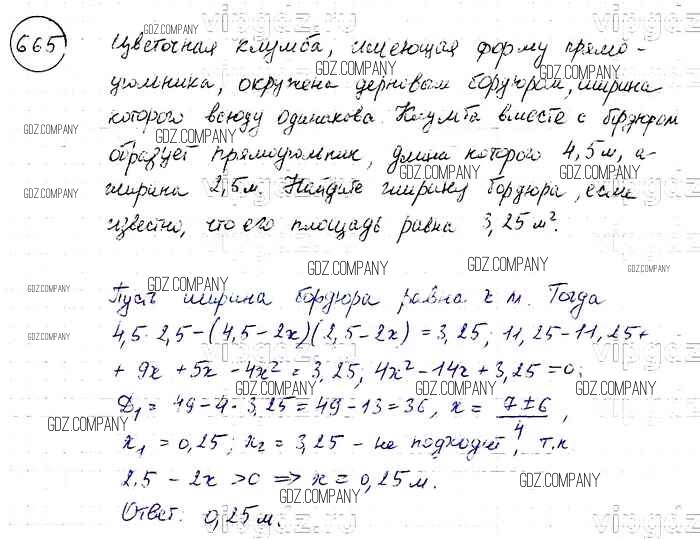 665
Цветочная клумба, имеющая форму прямо-
угольника, окружена дерновым бордюром, ширина
которого всюду одинакова. Клумба вместе с бордюром
образует прямоугольник, длина которого 4,5 м, а
ширина 2,5 м. Найдите ширину бордюра, если
известно, что его площадь равна 3,25 м².
Пусть ширина бордюра равна x м. Тогда
4,5 · 2,5 - (4,5 - 2x)(2,5 - 2x) = 3,25; 11,25 - 11,25 +
+ 9x + 5x - 4x² = 3,25; 4x² - 14x + 3,25 = 0;
D₁ = 49 - 4 · 3,25 = 49 - 13 = 36, x = (7 ± 6)/4,
x₁ = 0,25; x₂ = 3,25 - не подходит, т.к
2,5 - 2x > 0 => x = 0,25 м.
Ответ: 0,25 м.
GDZ.COMPANY
vipgdz.ru